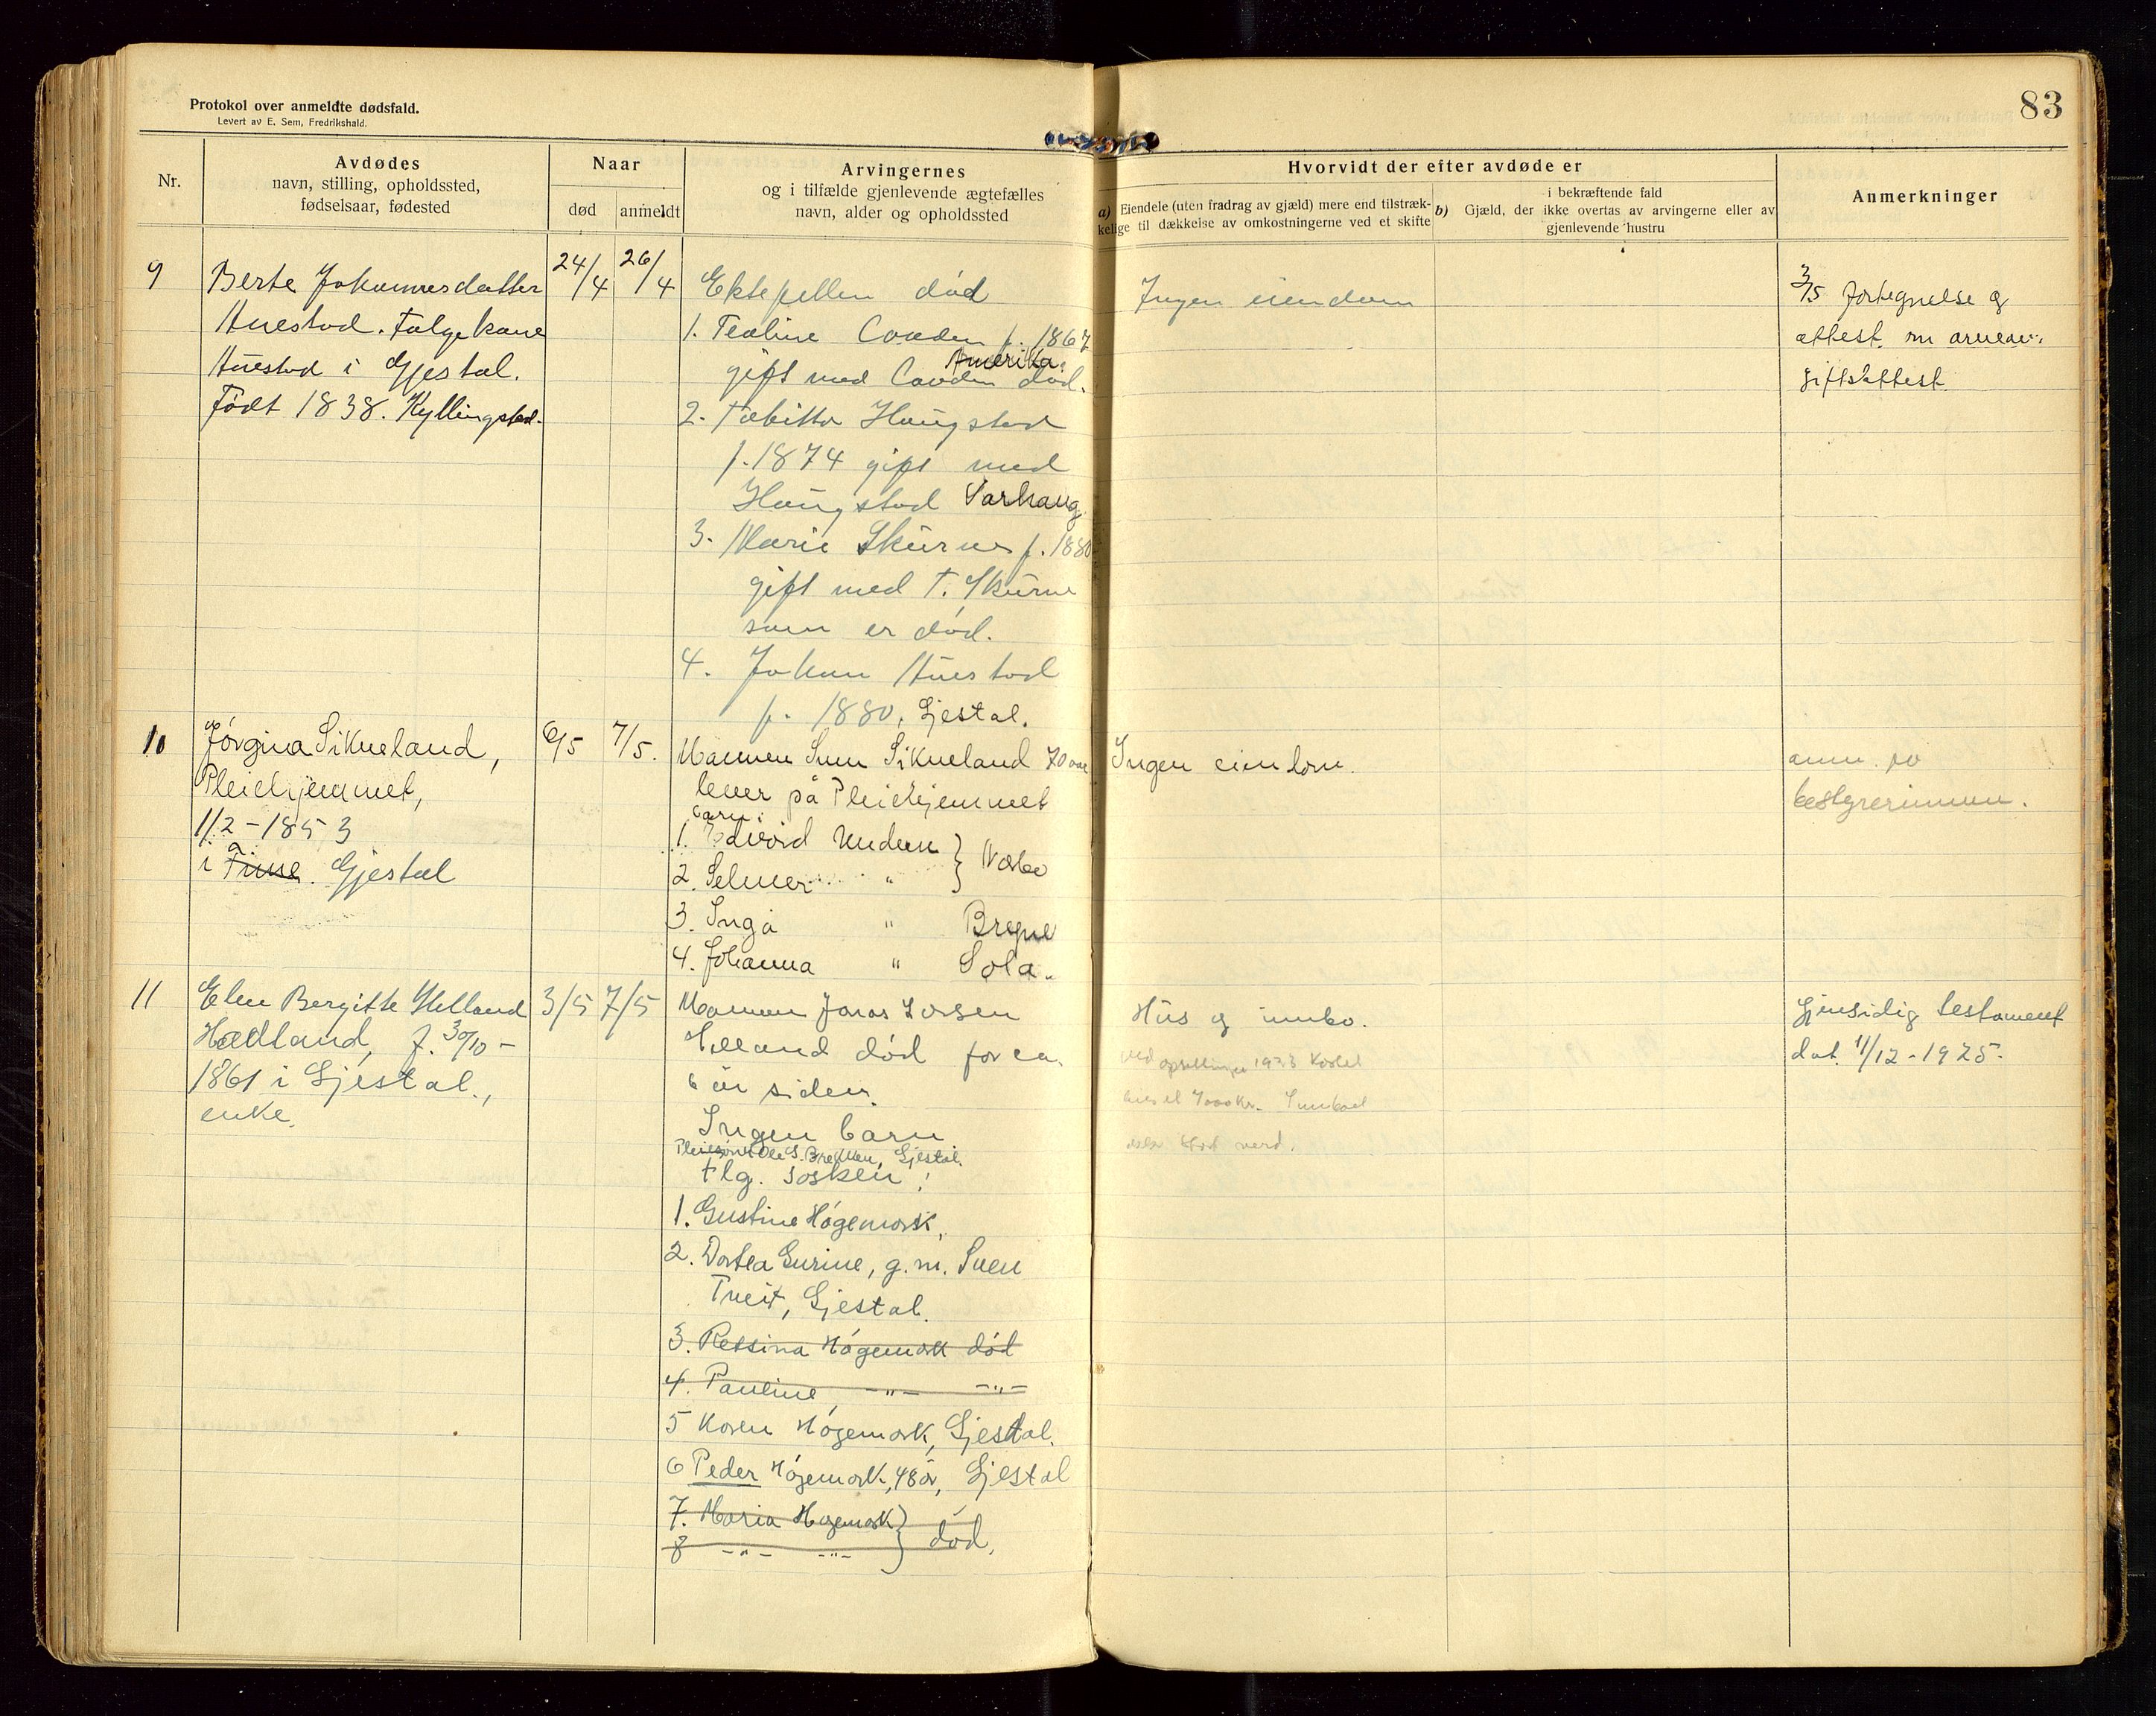 83
Protokol over anmeldte dødsfald.
Levert av E. Sem, Fredrikshald.
Nr.
Avdødes
navn, stilling, opholdssted,
fødselsaar, fødested
Naar
død
anmeldt
Arvingernes
og i tilfælde gjenlevende ægtefælles
navn, alder og opholdssted
Hvorvidt der efter avdøde er
a) Eiendele (uten fradrag av gjæld) mere end tilstræk-
kelige til dækkelse av omkostningerne ved et skifte
i bekræftende fald
b) Gjæld, der ikke overtas av arvingerne eller av
gjenlevende hustru
Anmerkninger
9
Berte Johannesdatter
Auestad. Følgekone
Auestad i Gjestal.
Født 1838. Kyllingstad.
24/4
26/4
Ektefellen død
1. Tealine f. 1867
Amerika.
gift med død.
2. Tabitta Haugstad
f. 1874 gift med
Haugstad Varhaug
3. Marie Skurve f. 1880
gift med T. Skurve
som er død.
4. Johan Auestad
f. 1880, Gjestal.
Ingen eiendom
3/5 fortegnelse og
attest om arveav-
giftsattest.
10
Jørgina Sikveland,
Pleiehjemmet,
1/2 - 1853
i Gjestal
6/5
7/5.
Mannen Sven Sikveland 70 aar
lever på Pleiehjemmet
barn:
1. Edvard Undem } Nærbø
2. Selmer "
3. Inga " Bryne
4. Johanna " Sola.
Ingen eiendom.
anm. av
bestyrerinnen.
11
Elen Bergitte Helland
Hadland, f. 30/10 -
1861 i Gjestal.,
enke.
3/5
7/5
Mannen Jonas Larsen
Helland død for ca.
6 år siden.
Ingen barn
Pleiesønn Ole S. Brekken, Gjestal.
flg. søsken:
1. Gustine Høgemork,
2. Dortea Gurine, g.m. Sven
Tveit, Gjestal.
3. Ressina Høgemork død
4. Pauline -"- -"-
5 Karen Høgemork, Gjestal.
6 Peder Høgemork, 48 år, Gjestal
7. Maria Høgemork } død.
8 -"- -"-
Hus og innbo.
ved 1923 kostet
4000 kr. Innboet
verd.
Gjensidig testament
dat. 11/12 - 1925.